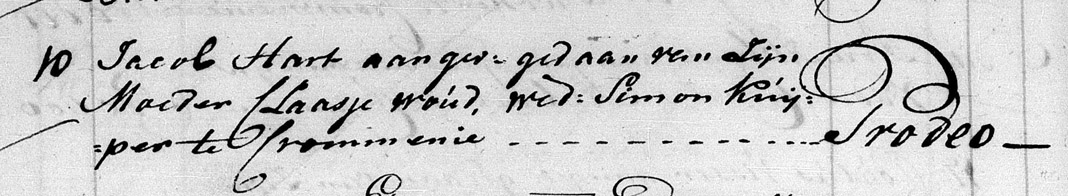 10 Jacob Hart aanger= gedaan van Zijn
Moeder Claasje woud, wed= Simon Kuij=
=per te Crommenie - - - - - - - - - Prodeo —